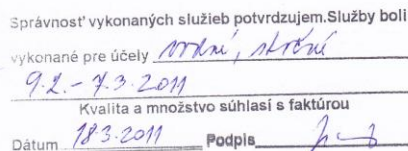 Správnosť vykonaných služieb potvrdzujem.Služby boli
vykonané pre účely vodné, stočné
9.2. - 7.3.2011
Kvalita a množstvo súhlasí s faktúrou
Dátum 18.3.2011 Podpis